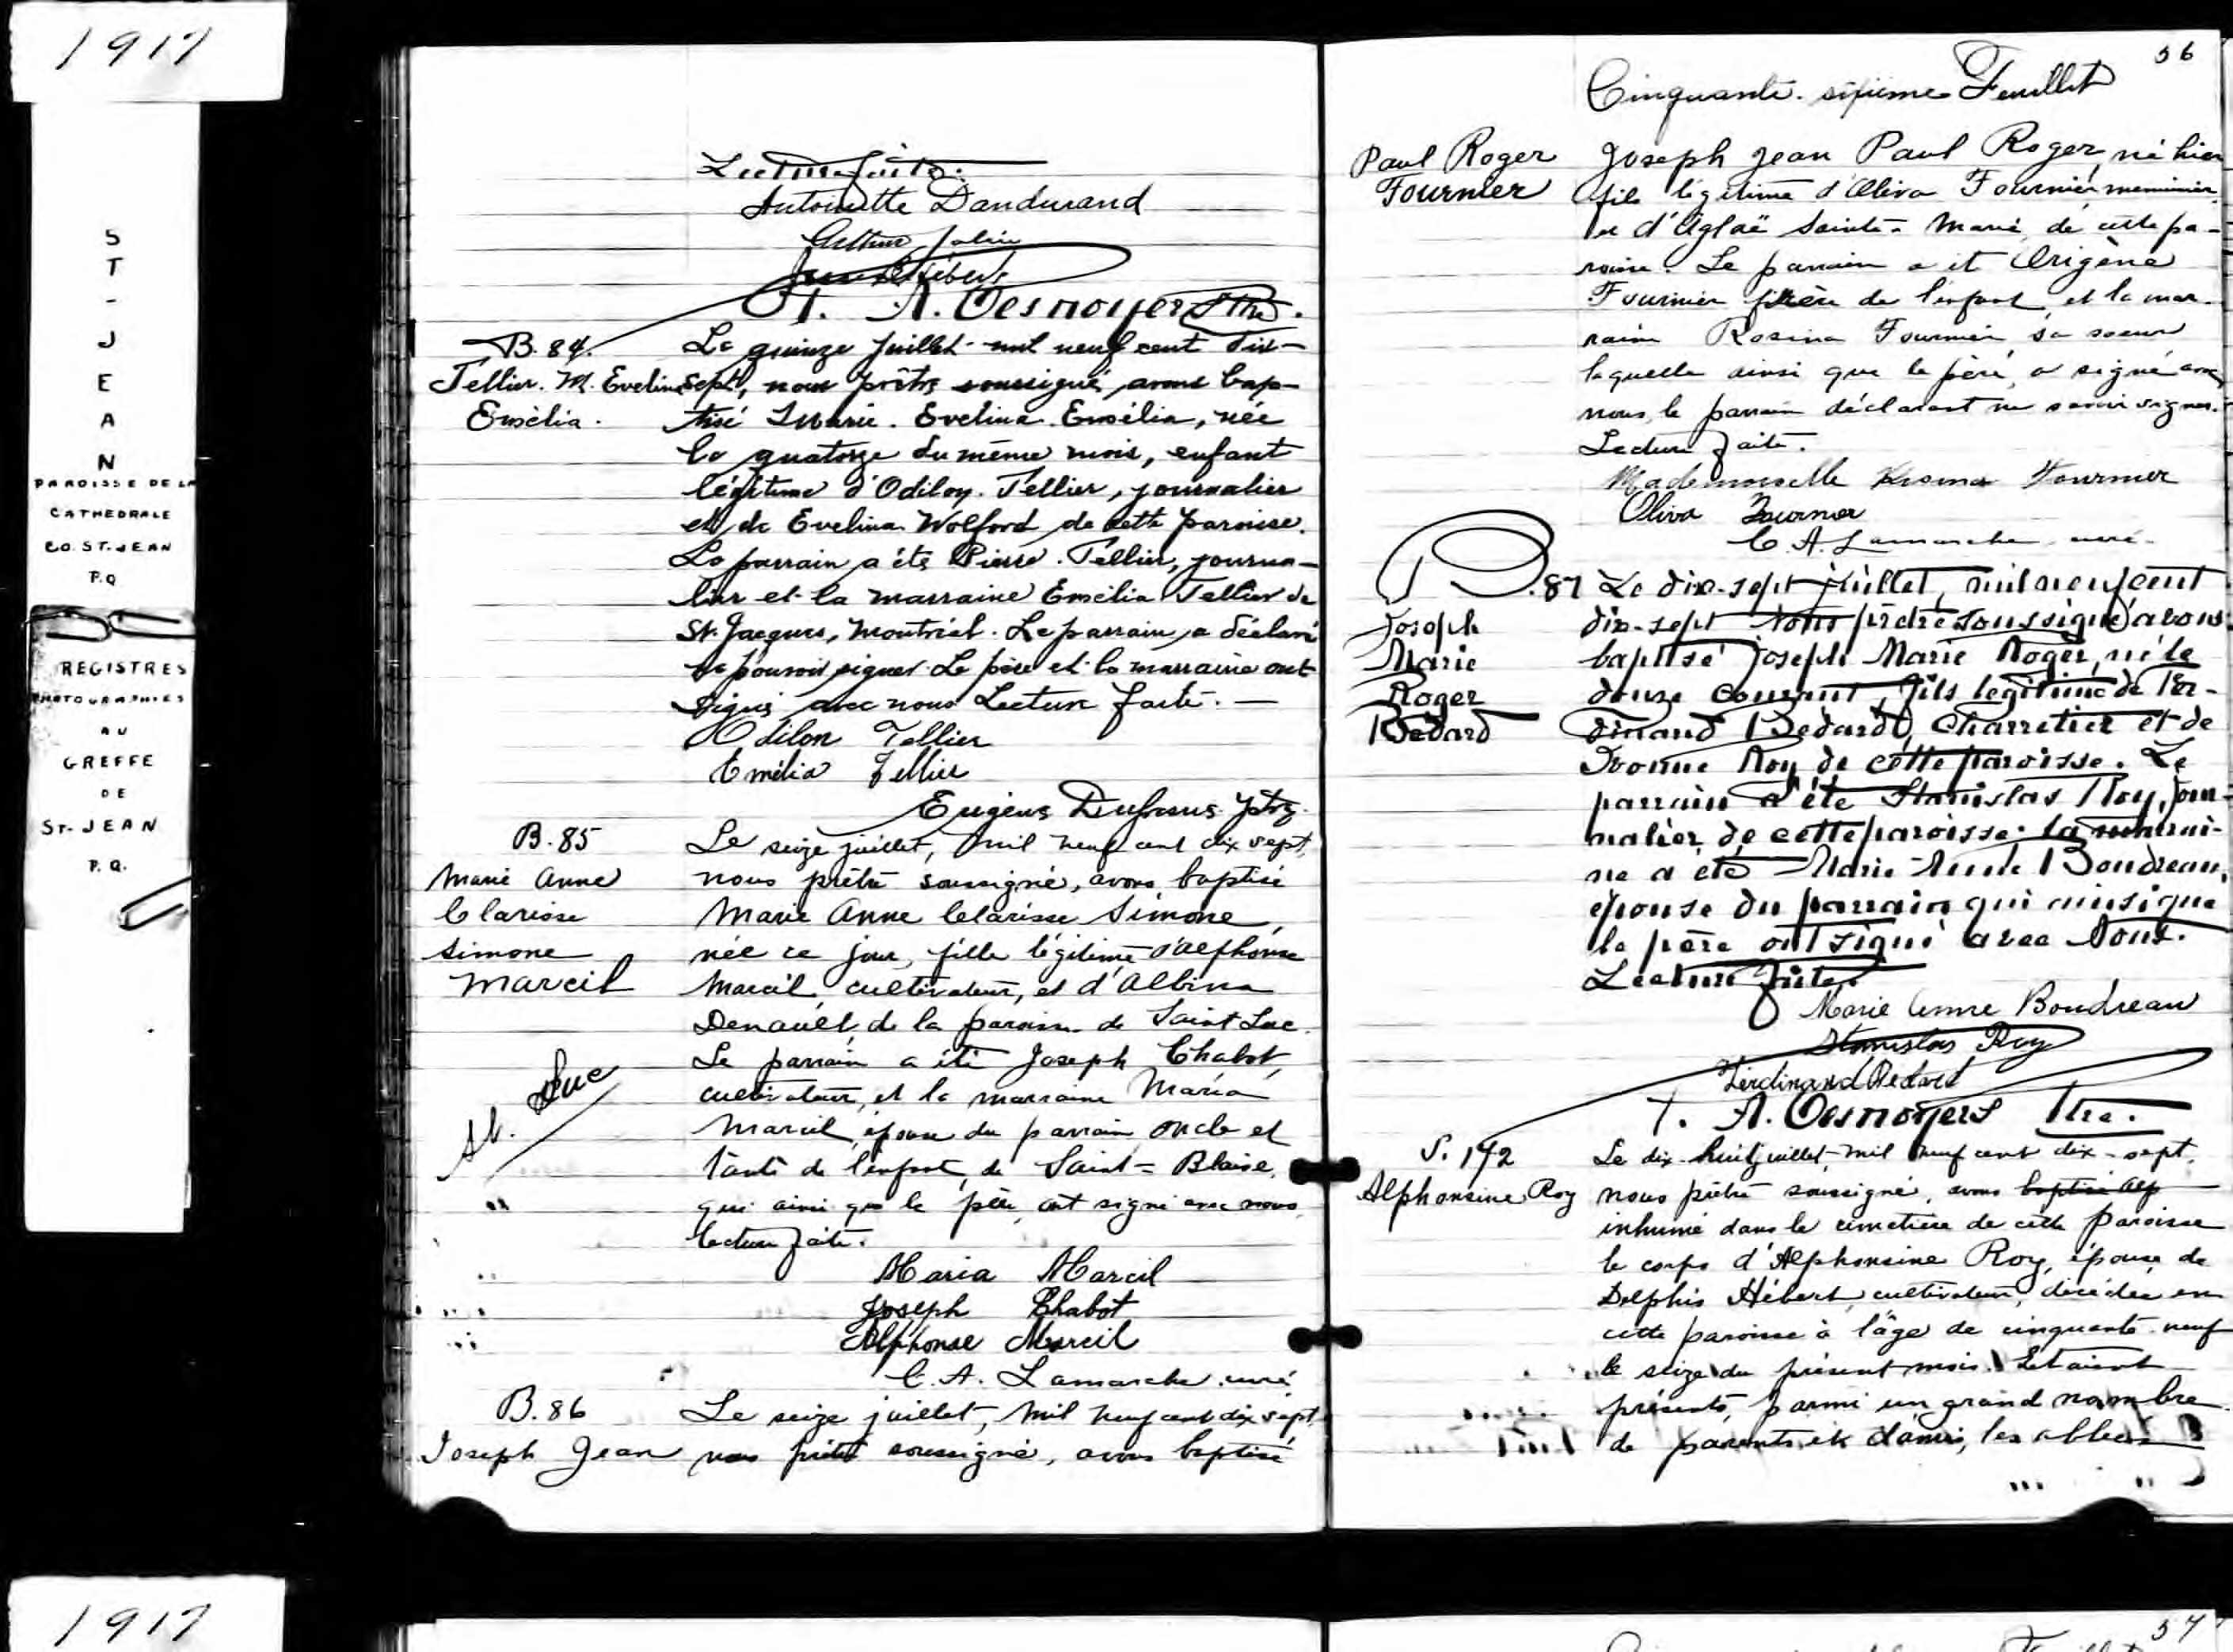 1917
ST-JEAN
PAROISSE DE LA
CATHEDRALE
CO. ST-JEAN
P.Q
REGISTRES
PHOTOGRAPHIES
AU
GREFFE
DE
ST-JEAN
P.Q.
1917
Lecture faite.
Antoinette Dandurand
Arthur
Hébert
A. Desnoyers Ptre.
B. 84.
Tellier. M. Evelina
Emélia.
Le quinze juillet mil neuf cent dix-
sept, nous prêtre soussigné, avons bap-
tisé Marie. Evelina. Emélia, née
le quatorze du même mois, enfant
légitime d'Odilon. Tellier, journalier
et de Evelina Wolford de cette paroisse.
Le parrain a été Pierre. Tellier, journa-
lier et la marraine Emélia Tellier de
St. Jacques, Montréal. Le parrain a déclaré
ne pouvoir signer. Le père et la marraine ont
signé avec nous Lecture faite. —
Odilon Tellier
Emélia Tellier
Eugène Dufresne ptre.
B. 85
Marie Anne
Clarisse
Simone
Marcil
St. Luc
Le seize juillet, mil neuf cent dix sept,
nous prêtre soussigné, avons baptisé
Marie Anne Clarisse Simone,
née ce jour, fille légitime d'Alphonse
Marcil, cultivateur, et d'Albina
Denault, de la paroisse de Saint Luc.
Le parrain a été Joseph Chabot,
cultivateur, et la marraine Maria
Marcil, épouse du parrain oncle et
tante de l'enfant, de Saint-Blaise,
qui ainsi que le père, ont signé avec nous,
lecture faite.
Maria Marcil
Joseph Chabot
Alphonse Marcil
C. A. Lamarche curé
B. 86
Joseph Jean
Le seize juillet, mil neuf cent dix sept,
nous prêtre soussigné, avons baptisé
56
Cinquante-sixième Feuillet
Paul Roger
Fournier
Joseph Jean Paul Roger, né hier
fils légitime d'Oliva Fournier, menuisier,
et d'Aglaë Sainte-Marie, de cette pa-
roisse. Le parrain a été Origène
Fournier frère de l'enfant, et la mar-
raine Rosina Fournier sa soeur
laquelle ainsi que le père, a signé avec
nous, le parrain déclarant ne savoir signer.
Lecture faite.
Mademoiselle Fournier
Oliva Fournier
C. A. Lamarche curé.
B. 87
Joseph
Marie
Roger
Bédard
Le dix-sept juillet, mil neuf cent
dix-sept Nous prêtre soussigné avons
baptisé Joseph Marie Roger, né le
douze courant, fils légitime de Fer-
dinand Bédard, charretier et de
Yvonne Roy de cette paroisse. Le
parrain a été Stanislas Roy, jour-
nalier de cette paroisse: la marrai-
ne a été Marie-Anne Boudreau,
épouse du parrain qui ainsi que
le père ont signé avec Nous.
Lecture faite.
Marie Anne Boudreau
Stanislas Roy
Ferdinand Bedard
A. Desnoyers Ptre.
S. 172
Alphonsine Roy
Le dix-huit juillet, mil neuf cent dix-sept,
nous prêtre soussigné, avons baptisé Alp
inhumé dans le cimetière de cette paroisse
le corps d'Alphonsine Roy, épouse de
Delphis Hébert, cultivateur, décédée en
cette paroisse à l'âge de cinquante-neuf
le seize du présent mois. Etaient
présents, parmi un grand nombre
de parents et d'amis, les abbés
57